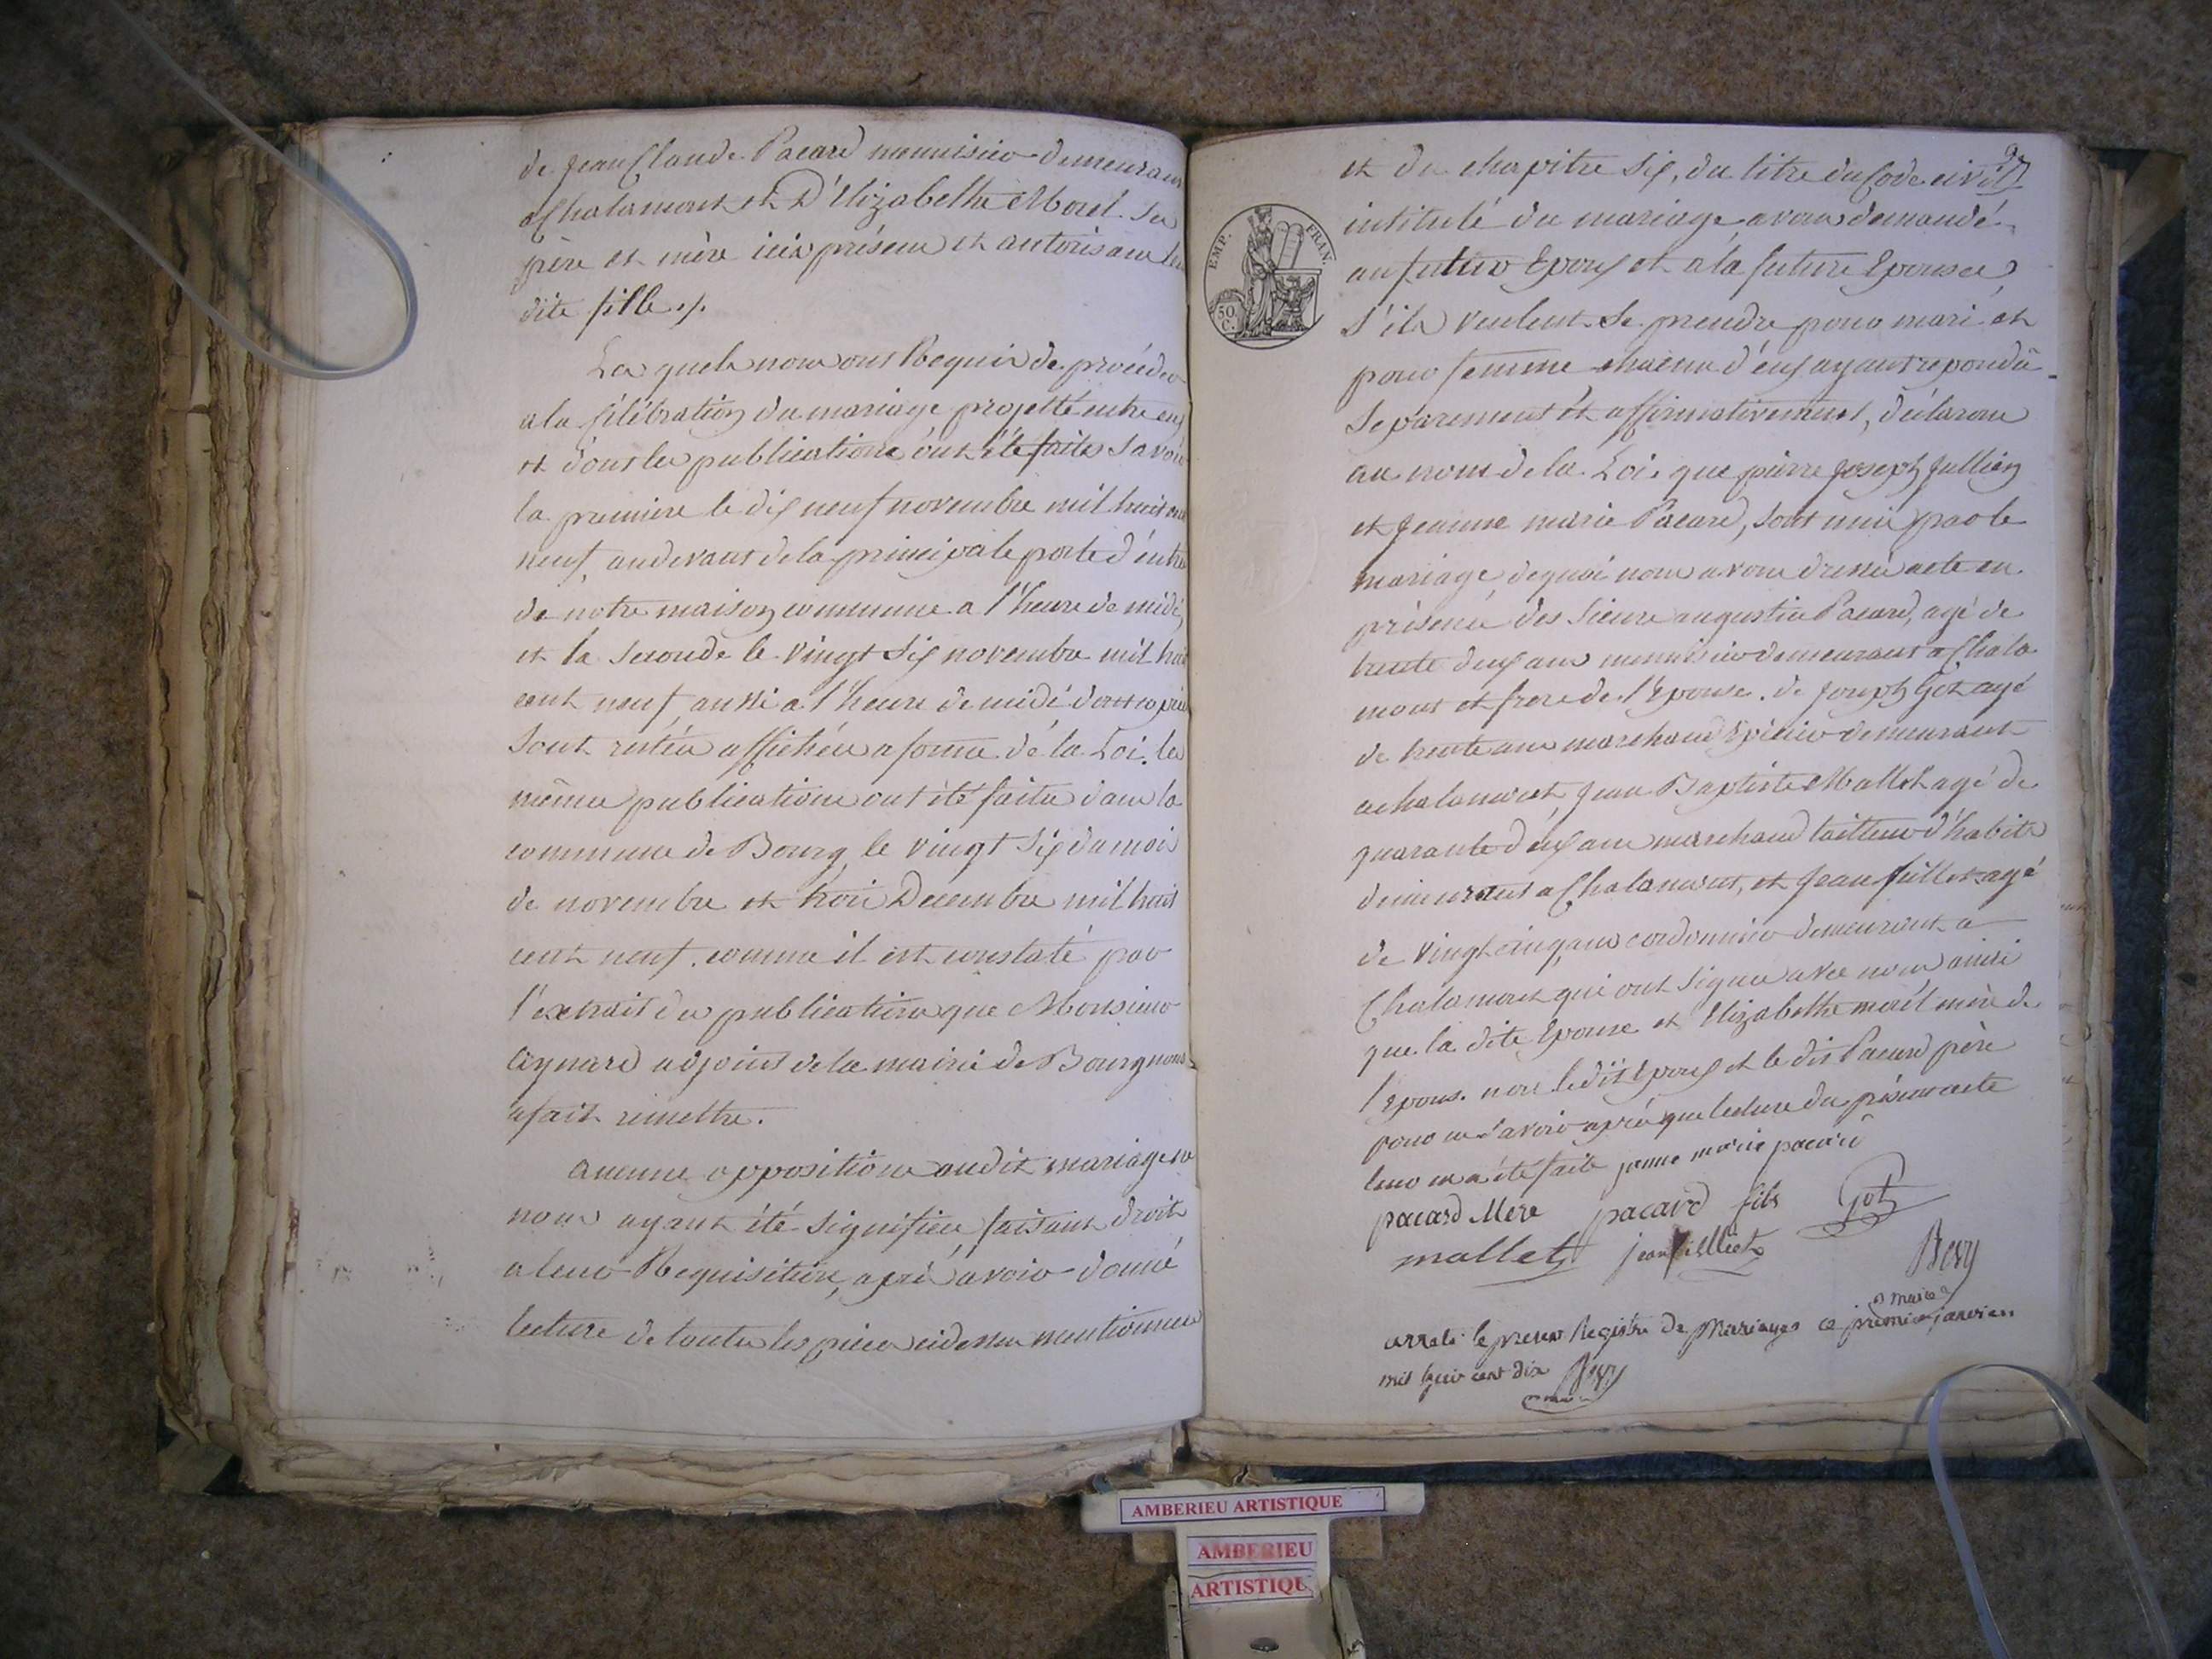 de jean Claude Pacard menuisier demeurant
a Chalamont et D'Elizabethe Morel. Ses
père et mère icix présens et autorisans leur
dite fille ./.
Les quels nous ont Requis de procéder
a la Célébration du mariage projetté entre eux
et dont les publications ont été faites Savoir
la premiere le dix neuf novembre mil huit cent
neuf, au devant de la principale porte d'entrée
de notre maison commune a l'heure de midi,
et la Seconde le vingt Six novembre mil huit
cent neuf, aussi a l'heure de midi dont copies
Sont restées affichées a forme de la Loi. les
mêmes publications ont été faites dans la
commune de Bourg le vingt Six du mois
de novembre et trois Decembre mil huit
cent neuf. comme il est constaté par
l'extrait des publications que Monsieur
aynard adjoint de la mairie de Bourg nous
a fait remettre.
aucune opposition audit mariage ne
nous ayant été Signifiée, faisant droit
a leur Requisition, après avoir donné
lecture de toutes les pièces cidessus mentionnées
et du chapitre Six, du titre du Code civil
intitulé du mariage avons demandé
au futur Epoux et a la future Epouse,
S'ils veulent Se prendre pour mari et
pour femme chacun d'eux ayant repondu
Separement et affirmativement, déclarons
au nom de la Loi que pierre joseph jullien
et jeanne marie Pacard, sont unis par le
mariage, de quoi nous avons dressé acte en
présence des Sieurs augustin Pacard, agé de
trente deux ans menuisier demeurant a Chala
mont et frere de l'Epouse. de joseph Got agé
de trente ans marchand Epicier demeurant
a chalamont, jean Baptiste Mallet agé de
quarante deux ans marchand tailleur d'habits
demeurant a Chalamont, et jean fillet agé
de vingt cinq ans cordonnier demeurant a
Chalamont qui ont Signé avec nous ainsi
que la dite Epouse et Elizabethe morel mère de
l'Epouse. non ledit Epoux et le dit Pacard père
pour ne Savoir après que lecture du présent acte
leur en a été faite janne marie pacard
pacard Mere pacard fils Got
mallet jean filliet
Bery
maire
arrete le present Registre de Mariages ce premier janvier
mil huit cent dix Bery
EMP. FRAN.
50 C.
AMBERIEU ARTISTIQUE
AMBERIEU
ARTISTIQU